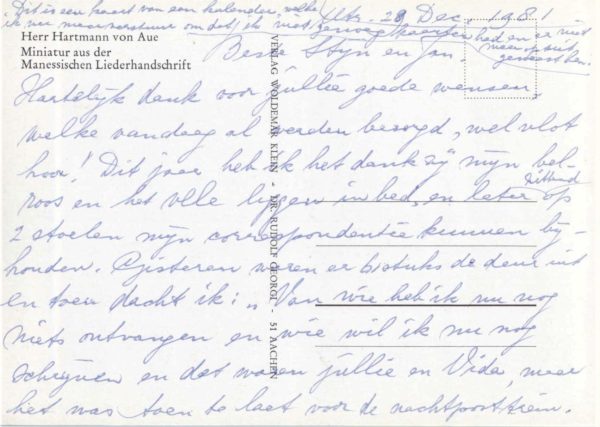 Dit is een kaart van een kalender, welke
ik nu meeverstuur omdat ik niet genoeg kaarten had en er niet
meer op uit
geweest ben.
Utr. 29 Dec. 1981
Herr Hartmann von Aue
Miniatur aus der
Manessischen Liederhandschrift
Beste Stijn en Jan.
Hartelijk dank voor jullie goede wensen,
welke vandaag al werden bezorgd, wel vlot
hoor! Dit jaar heb ik het dank zij mijn bel-
roos en het vele liggen in bed, en later zittend op
2 stoelen mijn correspondentie kunnen bij-
houden. Gisteren waren er 6 stuks de deur uit
en toen dacht ik: „Van wie heb ik nu nog
niets ontvangen en wie wil ik nu nog
schrijven en dat waren jullie en Vida, maar
het was toen te laat voor de nachtposttrein.
VERLAG WOLDEMAR KLEIN - DR. RUDOLF GEORGI - 51 AACHEN